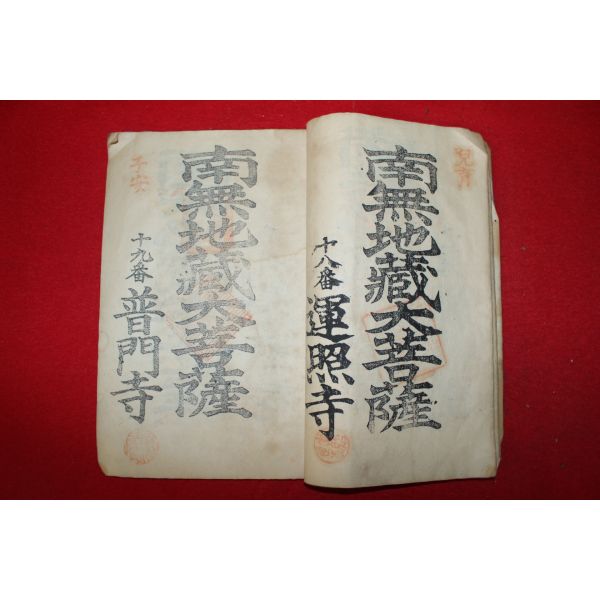 南無地藏大菩薩
十八番 運照寺
子安
南無地藏大菩薩
十九番 普門寺